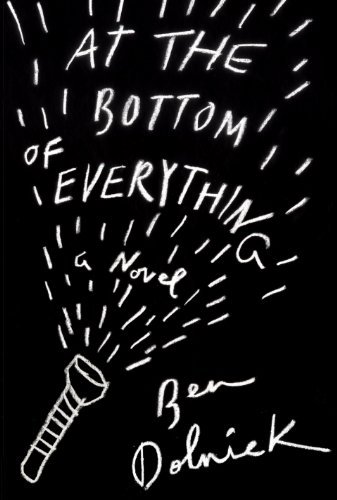 AT THE
BOTTOM
OF EVERYTHING
a Novel
Ben
Dolnick